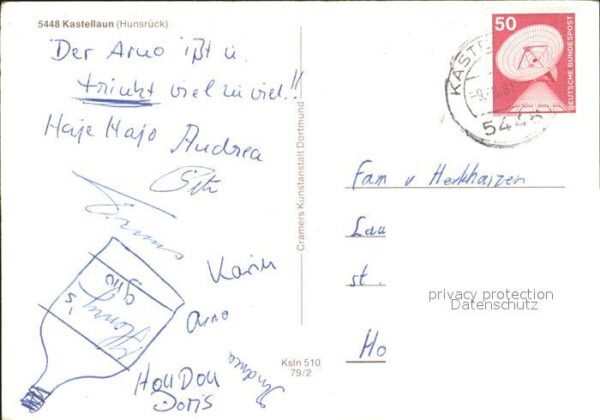 5448 Kastellaun (Hunsrück)
Der Arno ißt u.
trinkt viel zu viel!!
Haje Hajo Andrea
Karin
Arno
Andrea
Doris
Cramers Kunstanstalt Dortmund
Ksln 510
79/2
50
DEUTSCHE BUNDESPOST
KAST
5448
Fam v
Lau
st.
Ho
privacy protection
Datenschutz